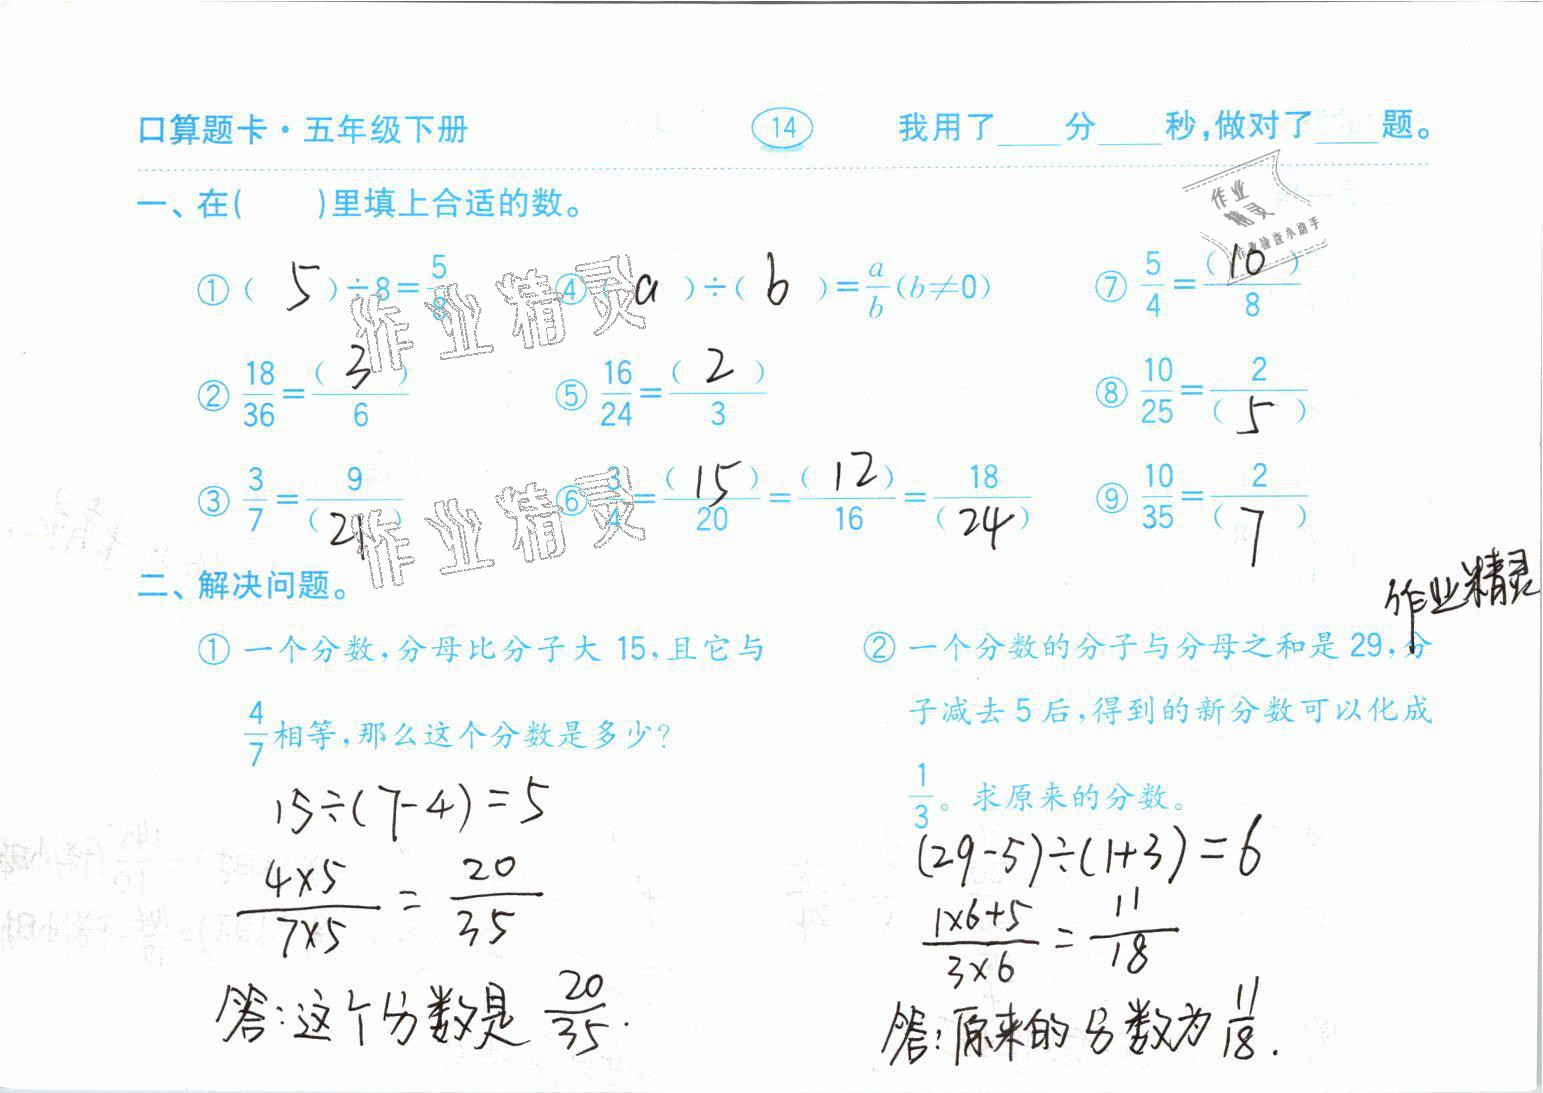 口算题卡·五年级下册 14 我用了____分____秒,做对了____题。
一、在( )里填上合适的数。
①( 5 )÷8=5/8 ④( a )÷( b )=a/b(b≠0) ⑦5/4=(10)/8
②18/36=(3)/6 ⑤16/24=(2)/3 ⑧10/25=2/(5)
③3/7=9/(21) ⑥3/4=(15)/20=(12)/16=18/(24) ⑨10/35=2/(7)
二、解决问题。
①一个分数,分母比分子大 15,且它与
4/7相等,那么这个分数是多少?
15÷(7-4)=5
4×5/7×5=20/35
答:这个分数是 20/35.
②一个分数的分子与分母之和是 29,分
子减去 5 后,得到的新分数可以化成
1/3。求原来的分数。
(29-5)÷(1+3)=6
1×6+5/3×6=11/18
答:原来的分数为 11/18.
作业精灵
作业
精灵
作业检查小助手
作业精灵
作业精灵